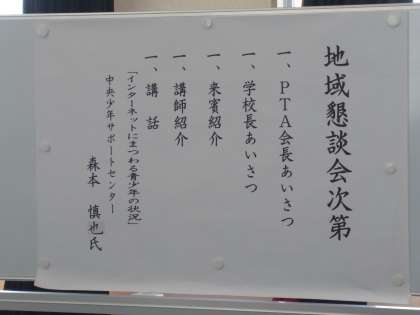 地域懇談会次第
一、PTA会長あいさつ
一、学校長あいさつ
一、来賓紹介
一、講師紹介
一、講 話
「インターネットにまつわる青少年の状況」
中央少年サポートセンター
森本 慎也氏